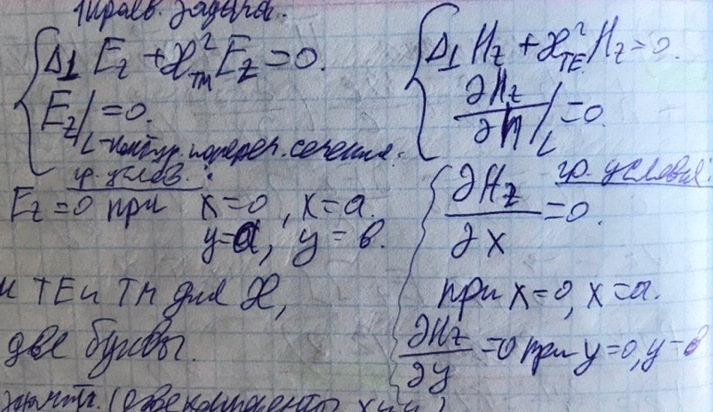 Краев. задача.
{ Δ⊥ E_z + ϰ²_TM E_z = 0.
E_z|_L = 0.
L - контур попереч. сечения.
гр. услов.:
E_z = 0 при x = 0, x = a.
y = 0, y = b.
и TE и TM для ϰ,
две буквы.
{ Δ⊥ H_z + ϰ²_TE H_z = 0.
∂H_z/∂n|_L = 0
гр. условия:
{ ∂H_z/∂x = 0.
при x = 0, x = a.
∂H_z/∂y = 0 при y = 0, y = b